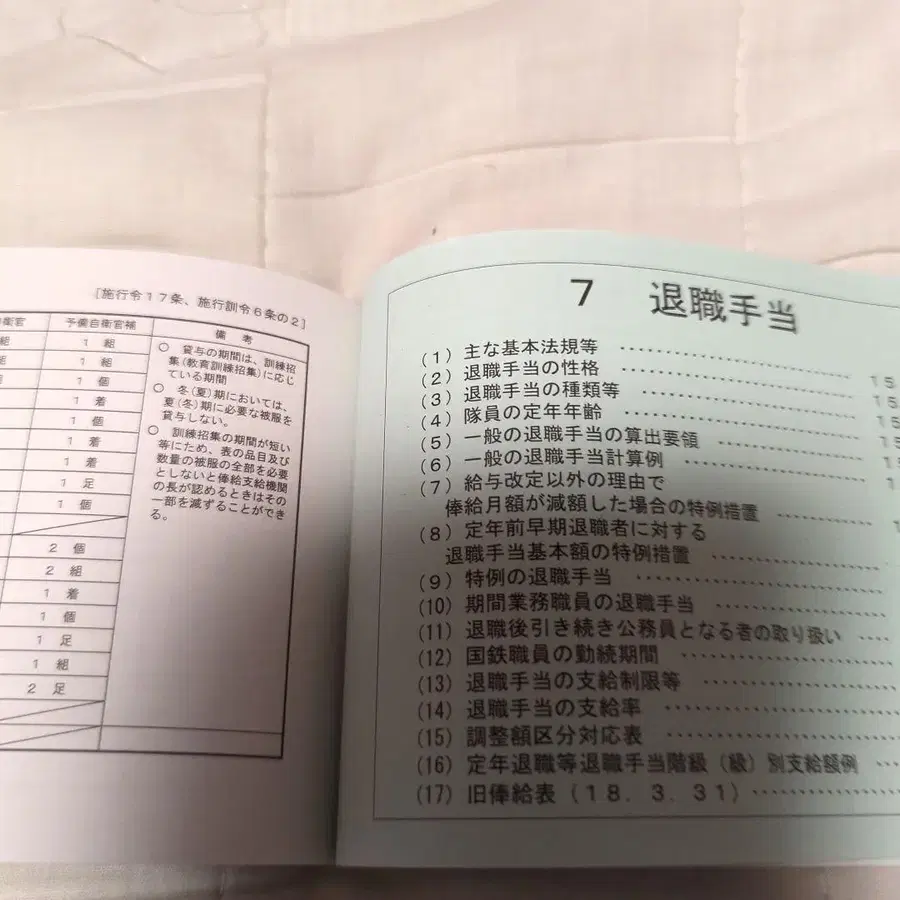 [施行令17条、施行訓令6条の2]
衛官 予備自衛官補 備考
組 1 組
組 1 組
個 1 個
着 1 着
個 1 個
着 1 着
1 着
足 1 足
個 1 個
2 個
2 組
1 着
1 個
1 足
1 組
2 足
○ 貸与の期間は、訓練招
集(教育訓練招集)に応じ
ている期間
○ 冬(夏)期においては、
夏(冬)期に必要な被服を
貸与しない。
○ 訓練招集の期間が短い
等にため、表の品目及び
数量の被服の全部を必要
としないと俸給支給機関
の長が認めるときはその
一部を減ずることができ
る。
7 退職手当
(1) 主な基本法規等
(2) 退職手当の性格 15
(3) 退職手当の種類等 15
(4) 隊員の定年年齢 15
(5) 一般の退職手当の算出要領 15
(6) 一般の退職手当計算例
(7) 給与改定以外の理由で
俸給月額が減額した場合の特例措置
(8) 定年前早期退職者に対する
退職手当基本額の特例措置
(9) 特例の退職手当
(10) 期間業務職員の退職手当
(11) 退職後引き続き公務員となる者の取り扱い
(12) 国鉄職員の勤続期間
(13) 退職手当の支給制限等
(14) 退職手当の支給率
(15) 調整額区分対応表
(16) 定年退職等退職手当階級（級）別支給額例
(17) 旧俸給表（18．3．31）